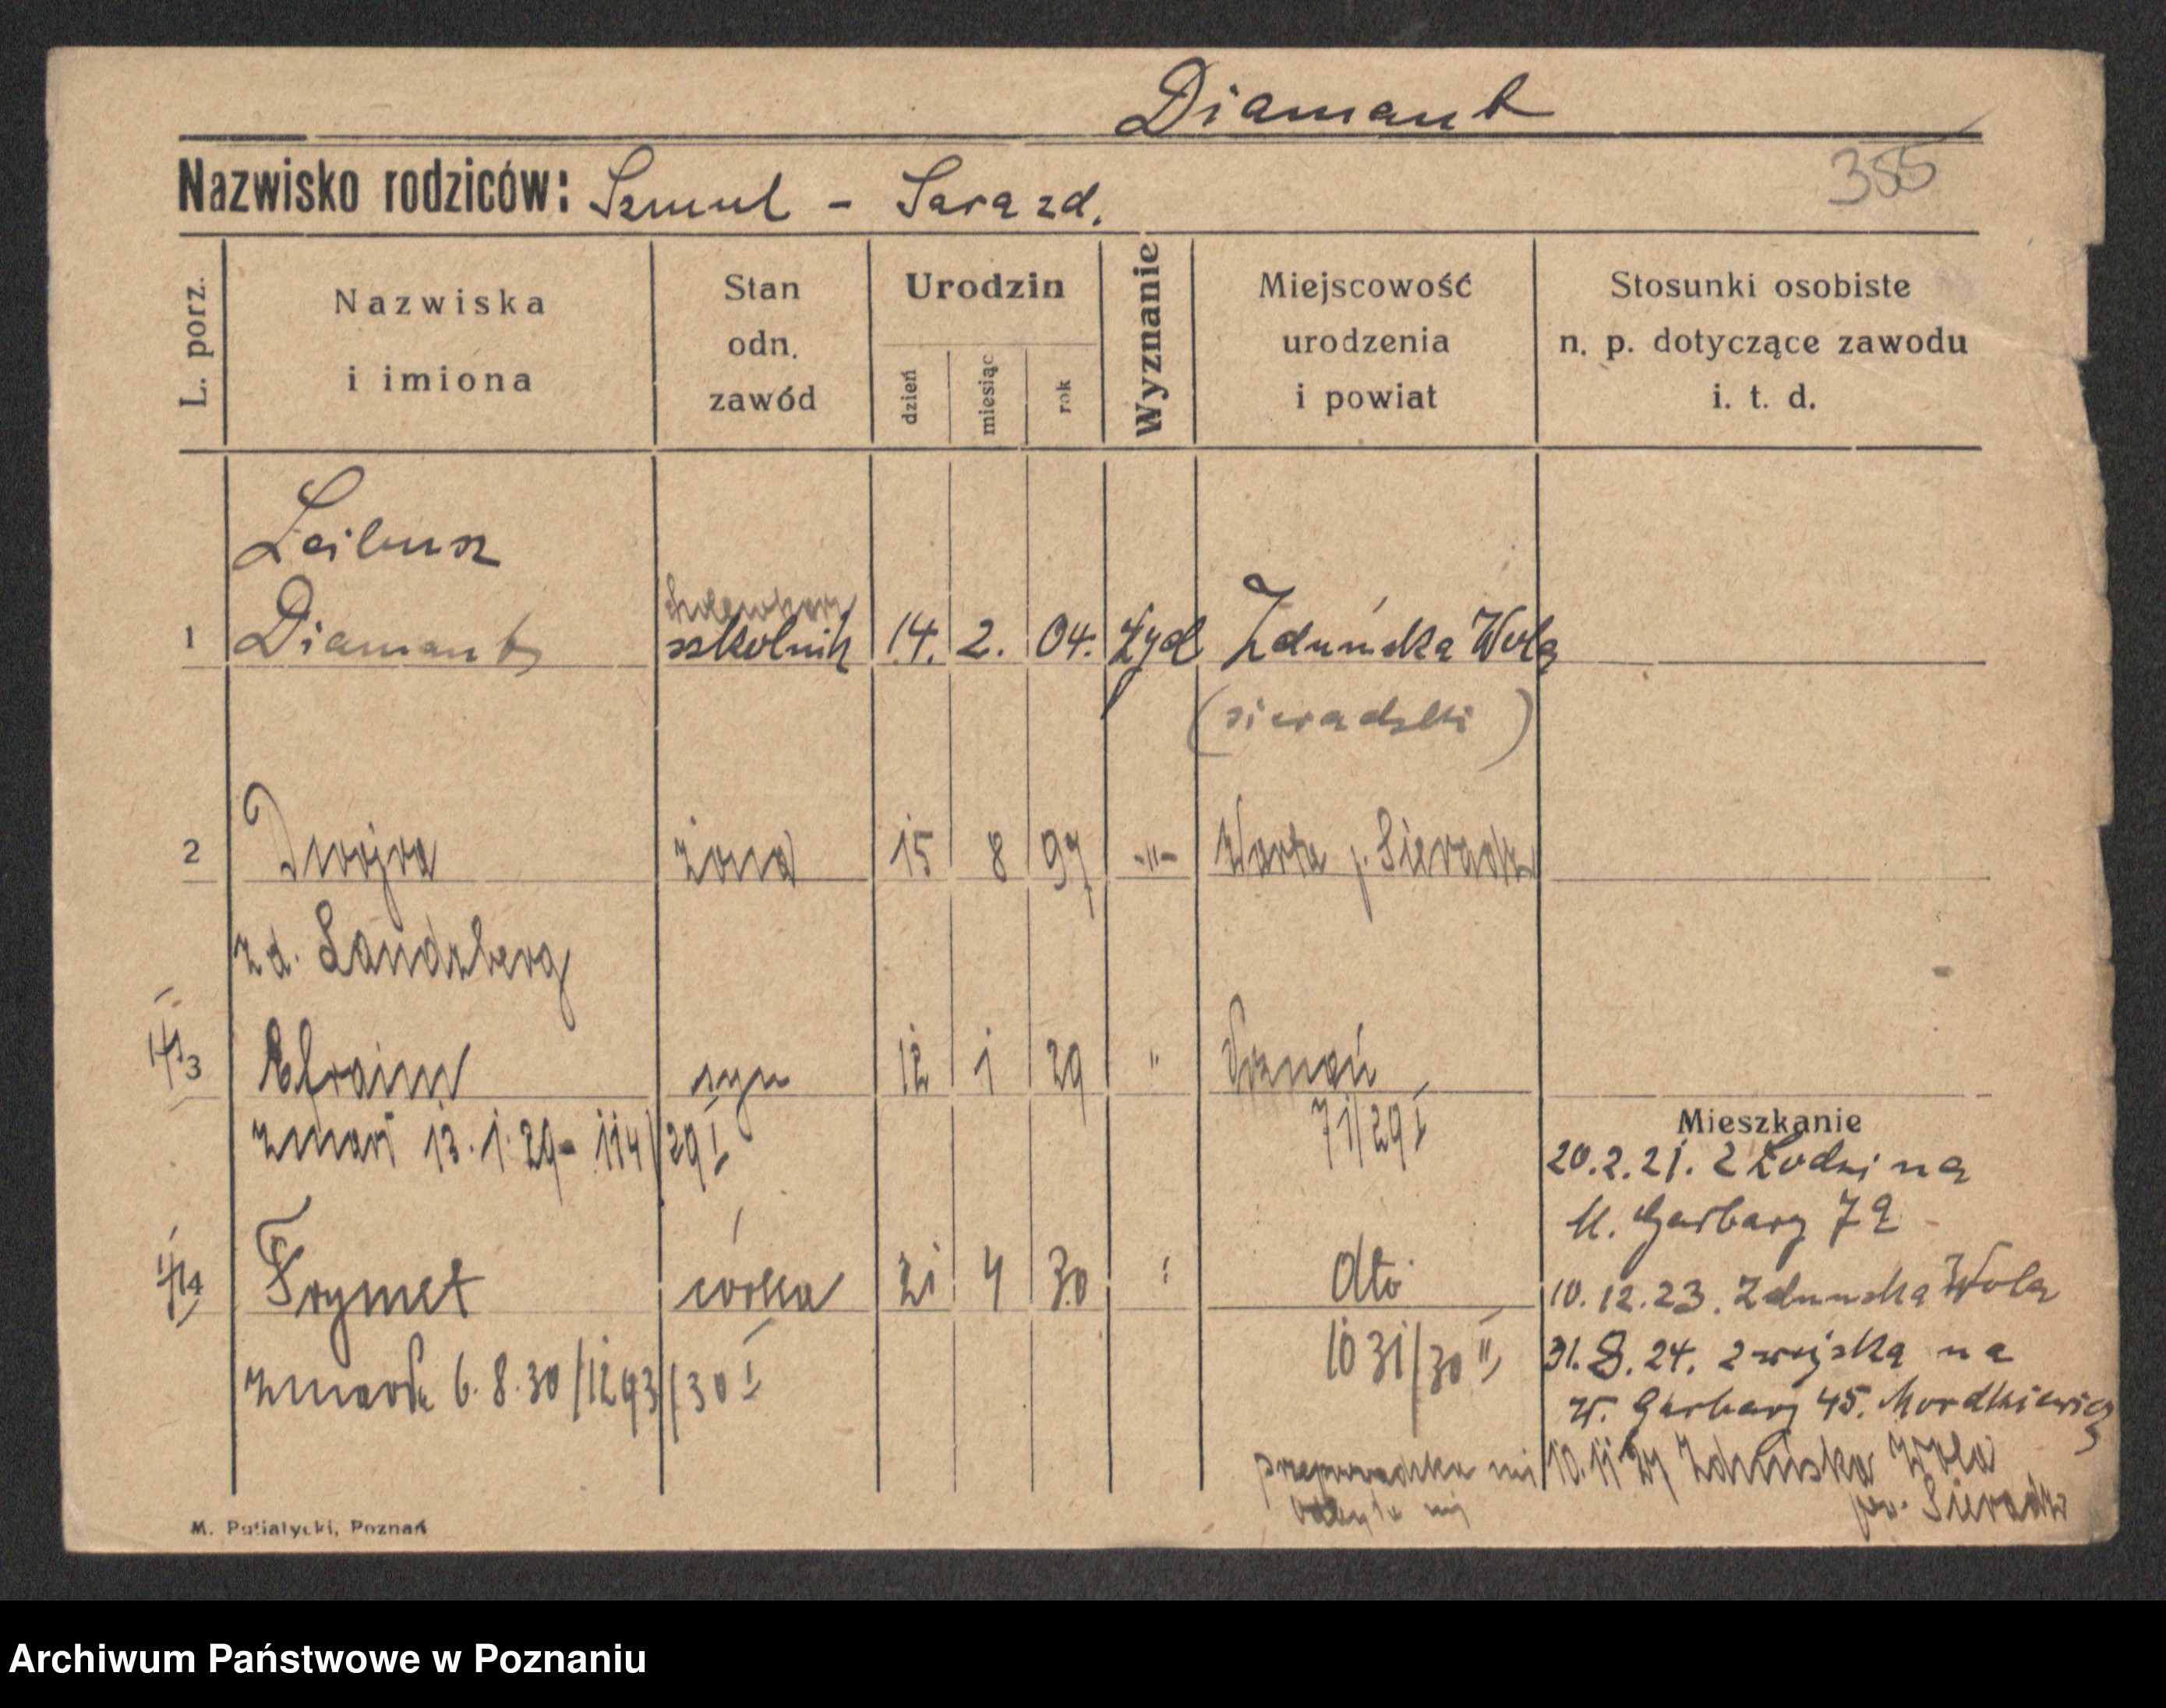 Diamant
Nazwisko rodziców: Szmul - Sara zd.
355
L. porz.
Nazwiska
i imiona
Stan
odn.
zawód
Urodzin
dzień
miesiąc
rok
Wyznanie
Miejscowość
urodzenia
i powiat
Stosunki osobiste
n. p. dotyczące zawodu
i. t. d.
Leibusz
1 Diamant szkolnik 14. 2. 04. Żyd Zduńska Wola
(sieradzki)
2 Dwojra żona 15 8 97 -"- Warta p. Sieradz
zd. Landzberg
3 Efraim syn 12 1 29 " Poznań
zmarł 13.1.29 - 114/29 I
71/29 I
Mieszkanie
20.2.21. z Łodzi na
M. Garbary 7a
4 Frymet córka 21 4 30 " dto
10.12.23. Zduńska Wola
zmarła 6.8.30/1293/30 I
1031/30 II
31.8.24. z wojska na
W. Garbary 45. Mordkiewicz
10.11 Zduńska Wola
pow. Sieradz
M. Putiatycki, Poznań
Archiwum Państwowe w Poznaniu